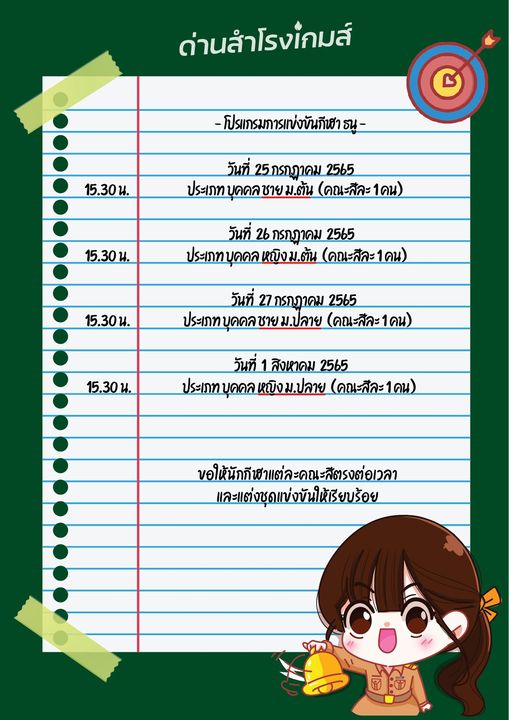 ด่านสำโรงเกมส์
- โปรแกรมการแข่งขันกีฬา ธนู -
วันที่ 25 กรกฎาคม 2565
15.30 น. ประเภท บุคคล ชาย ม.ต้น (คณะสีละ 1 คน)
วันที่ 26 กรกฎาคม 2565
15.30 น. ประเภท บุคคล หญิง ม.ต้น (คณะสีละ 1 คน)
วันที่ 27 กรกฎาคม 2565
15.30 น. ประเภท บุคคล ชาย ม.ปลาย (คณะสีละ 1 คน)
วันที่ 1 สิงหาคม 2565
15.30 น. ประเภท บุคคล หญิง ม.ปลาย (คณะสีละ 1 คน)
ขอให้นักกีฬาแต่ละคณะสีตรงต่อเวลา
และแต่งชุดแข่งขันให้เรียบร้อย